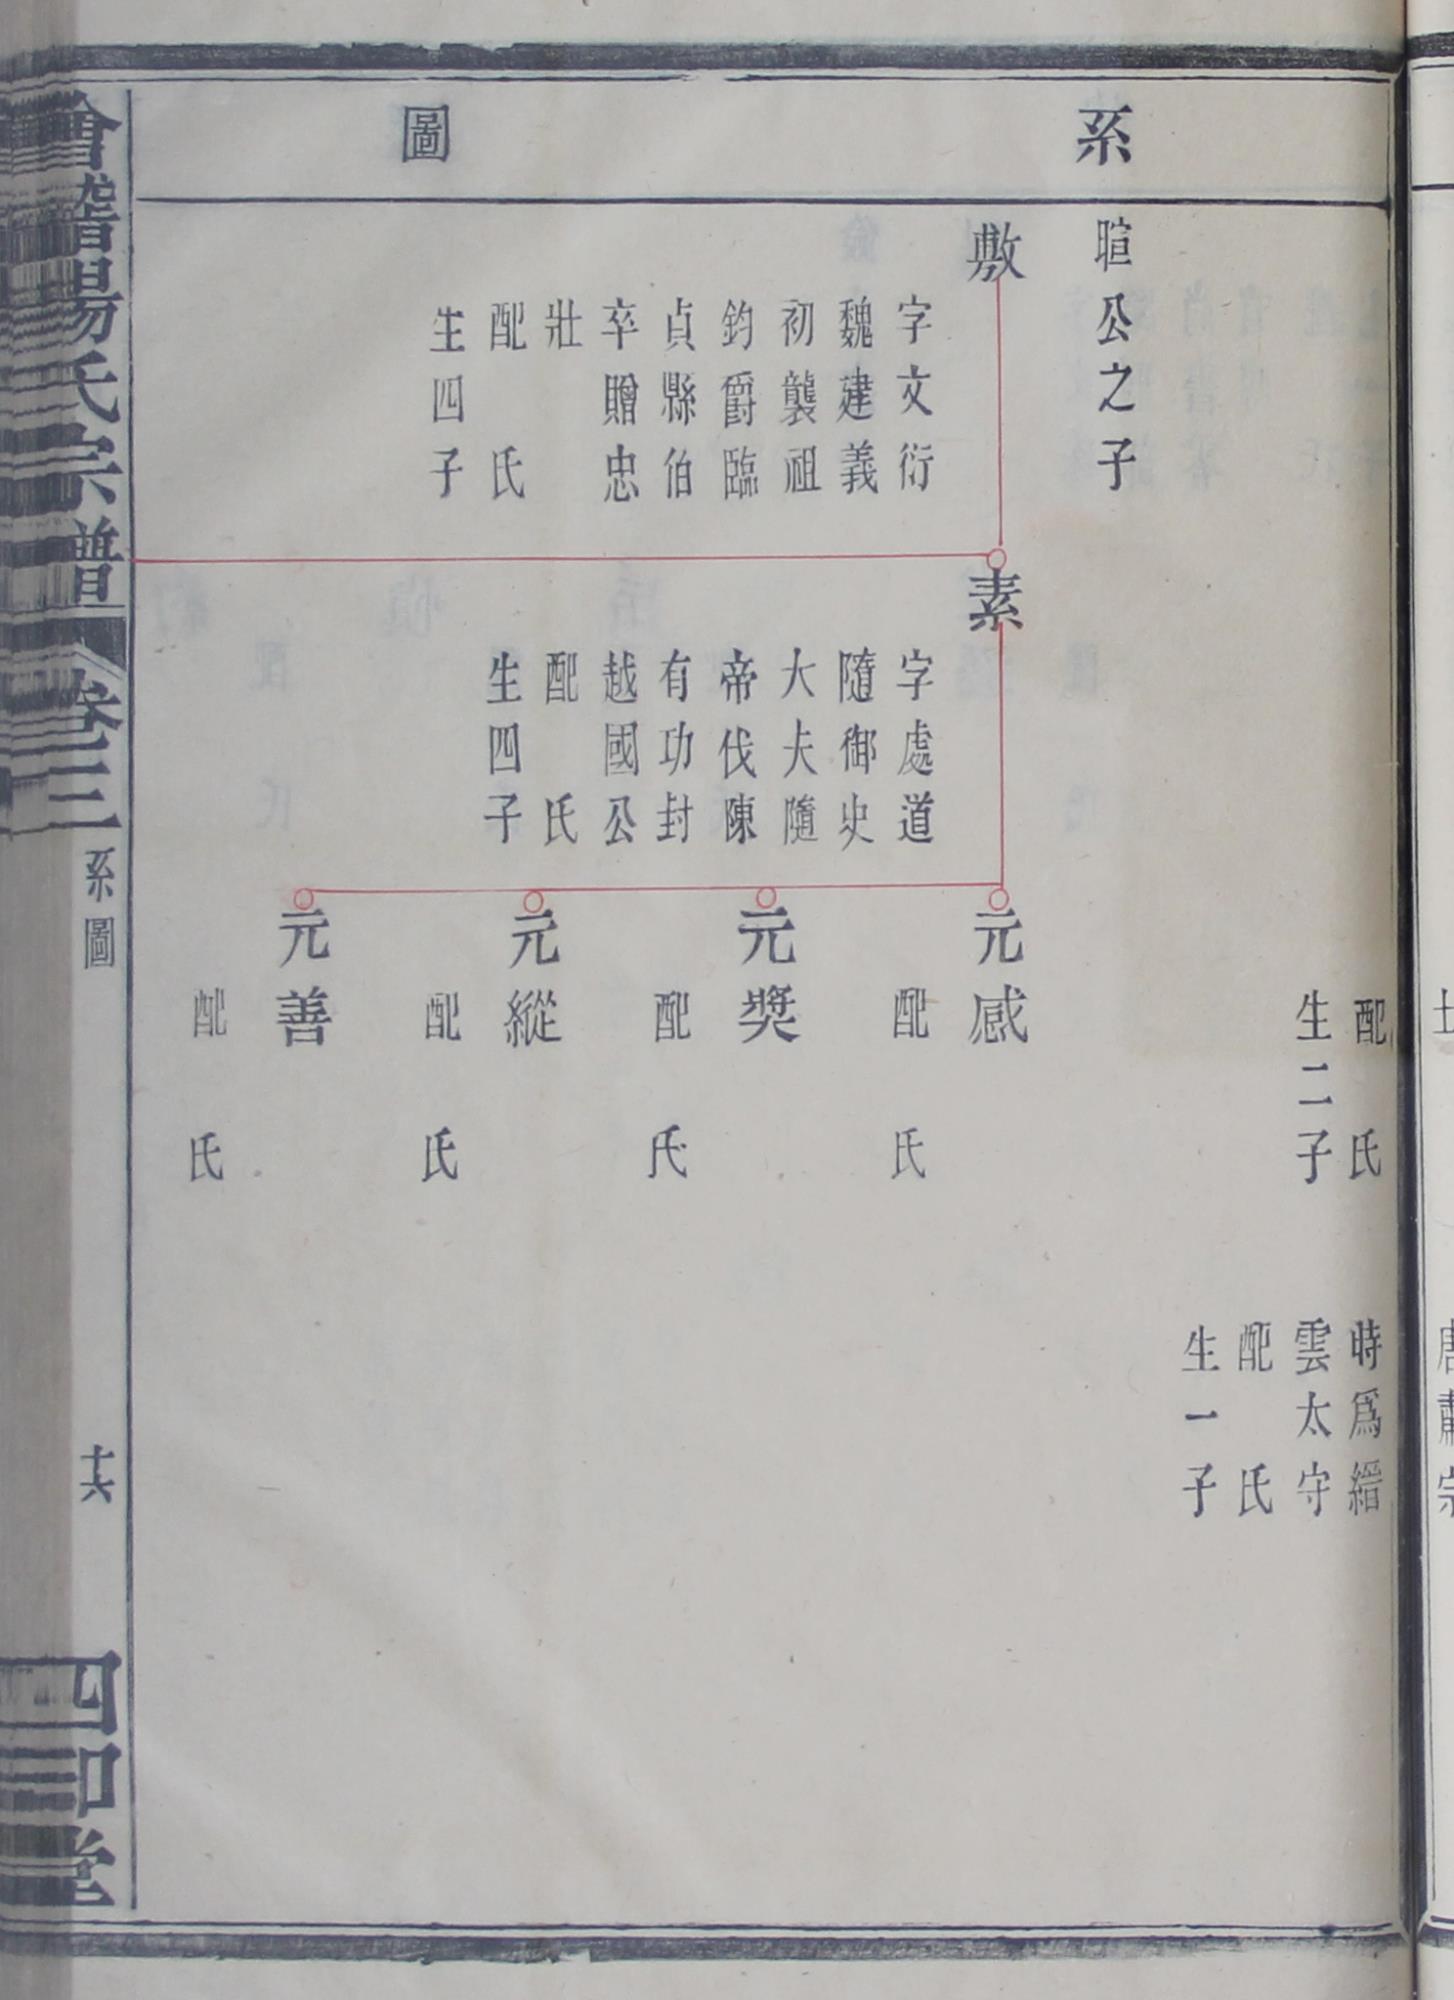 系圖
配氏
生二子
時爲縉
雲太守
配氏
生一子
暄公之子
敷
字文衍
魏建義
初襲祖
鈞爵臨
貞縣伯
卒贈忠
壯
配氏
生四子
素
字處道
隨御史
大夫隨
帝伐陳
有功封
越國公
配氏
生四子
元感
配氏
元奬
配氏
元縱
配氏
元善
配氏
會稽楊氏宗譜
卷三
系圖
十六
四知堂